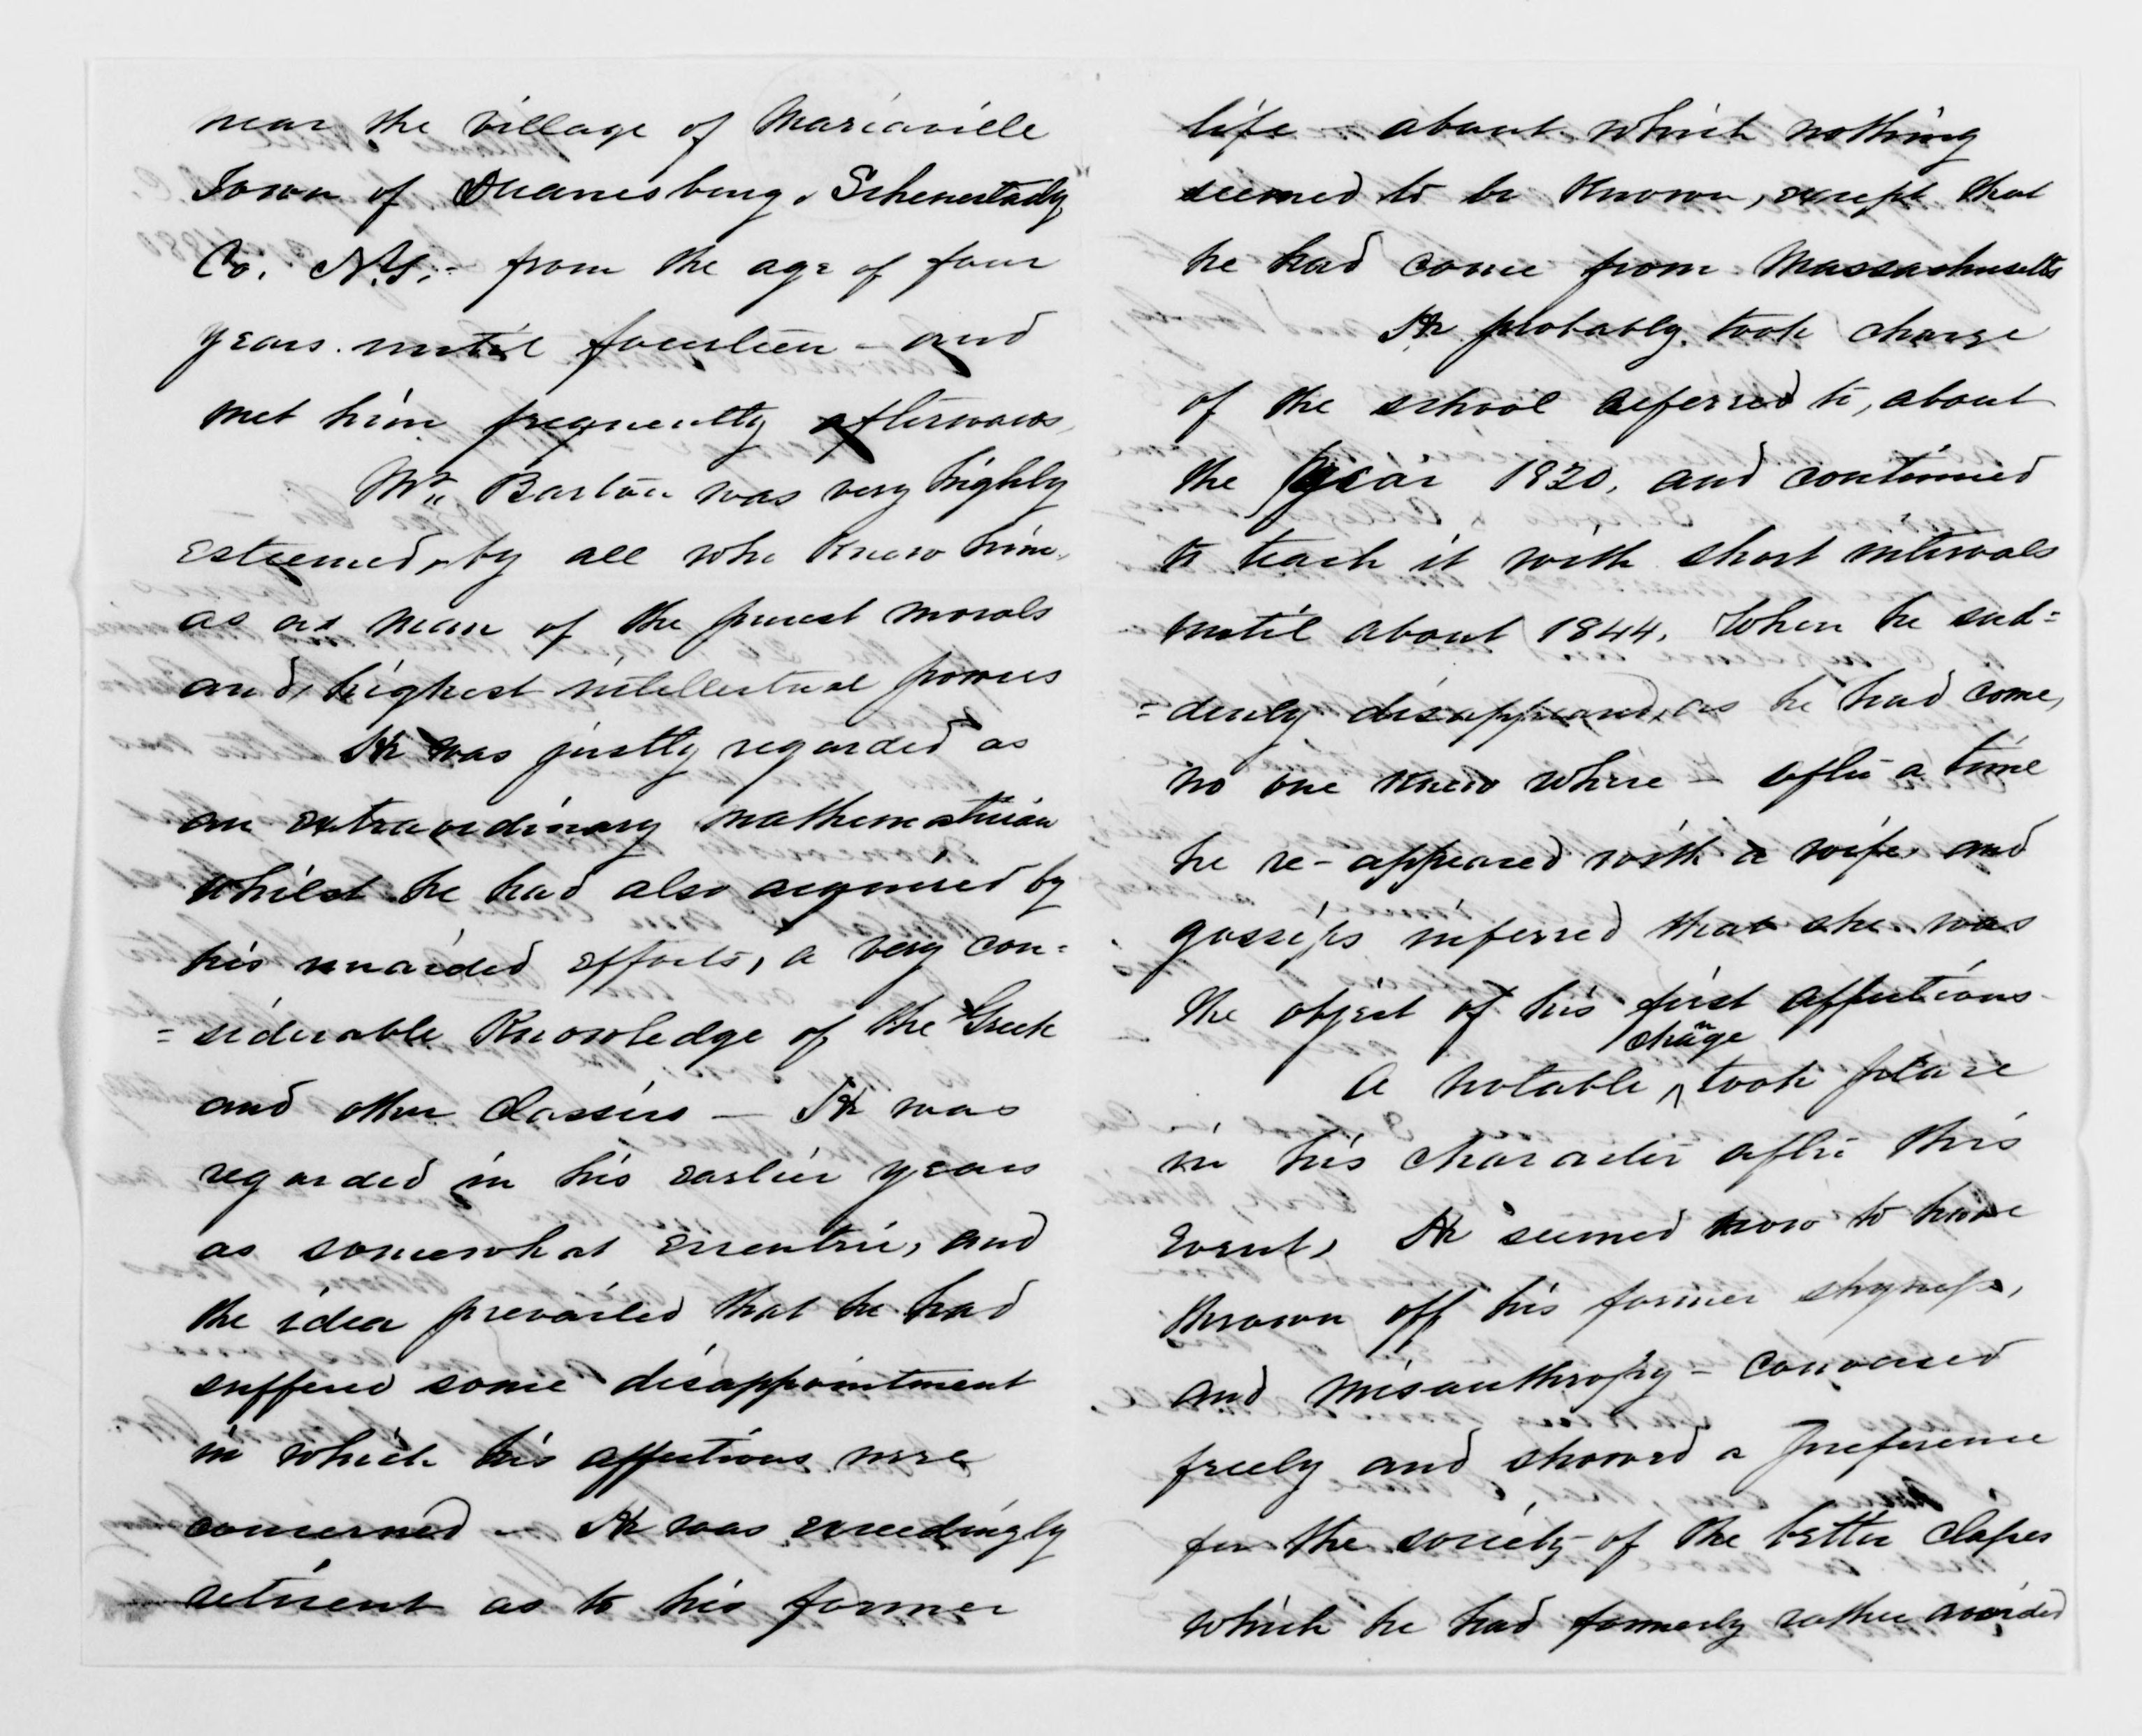 near the village of Mariaville
Town of Duanesburg, Schenectady
Co. N.Y. - from the age of four
years until fourteen - and
met him frequently afterwards,
Mr. Barton was very highly
esteemed, by all who knew him,
as a man of the purest morals
and highest intellectual powers
He was justly regarded as
an extraordinary mathematician
whilst he had also acquired by
his unaided efforts, a very con=
=siderable Knowledge of the Greek
and other Classics — He was
regarded in his earlier years
as somewhat eccentric, and
the idea prevailed that he had
suffered some disappointment
in which his affections were
concerned - He was exceedingly
reticent as to his former
life - about which nothing
seemed to be Known, except that
he had come from Massachusetts
He probably took charge
of the school referred to, about
the year 1830, and continued
to teach it with short intervals
until about 1844. When he sud=
=denly disappeared, as he had come,
no one knew where - after a time
he re-appeared with a wife, and
gossips inferred that she was
the object of his first affections -
change
A notable ^ took place
in his character after this
event, He seemed now to have
thrown off his former shyness,
and misanthropy - conversed
freely and showed a preference
for the society of the better classes
which he had formerly rather avoided